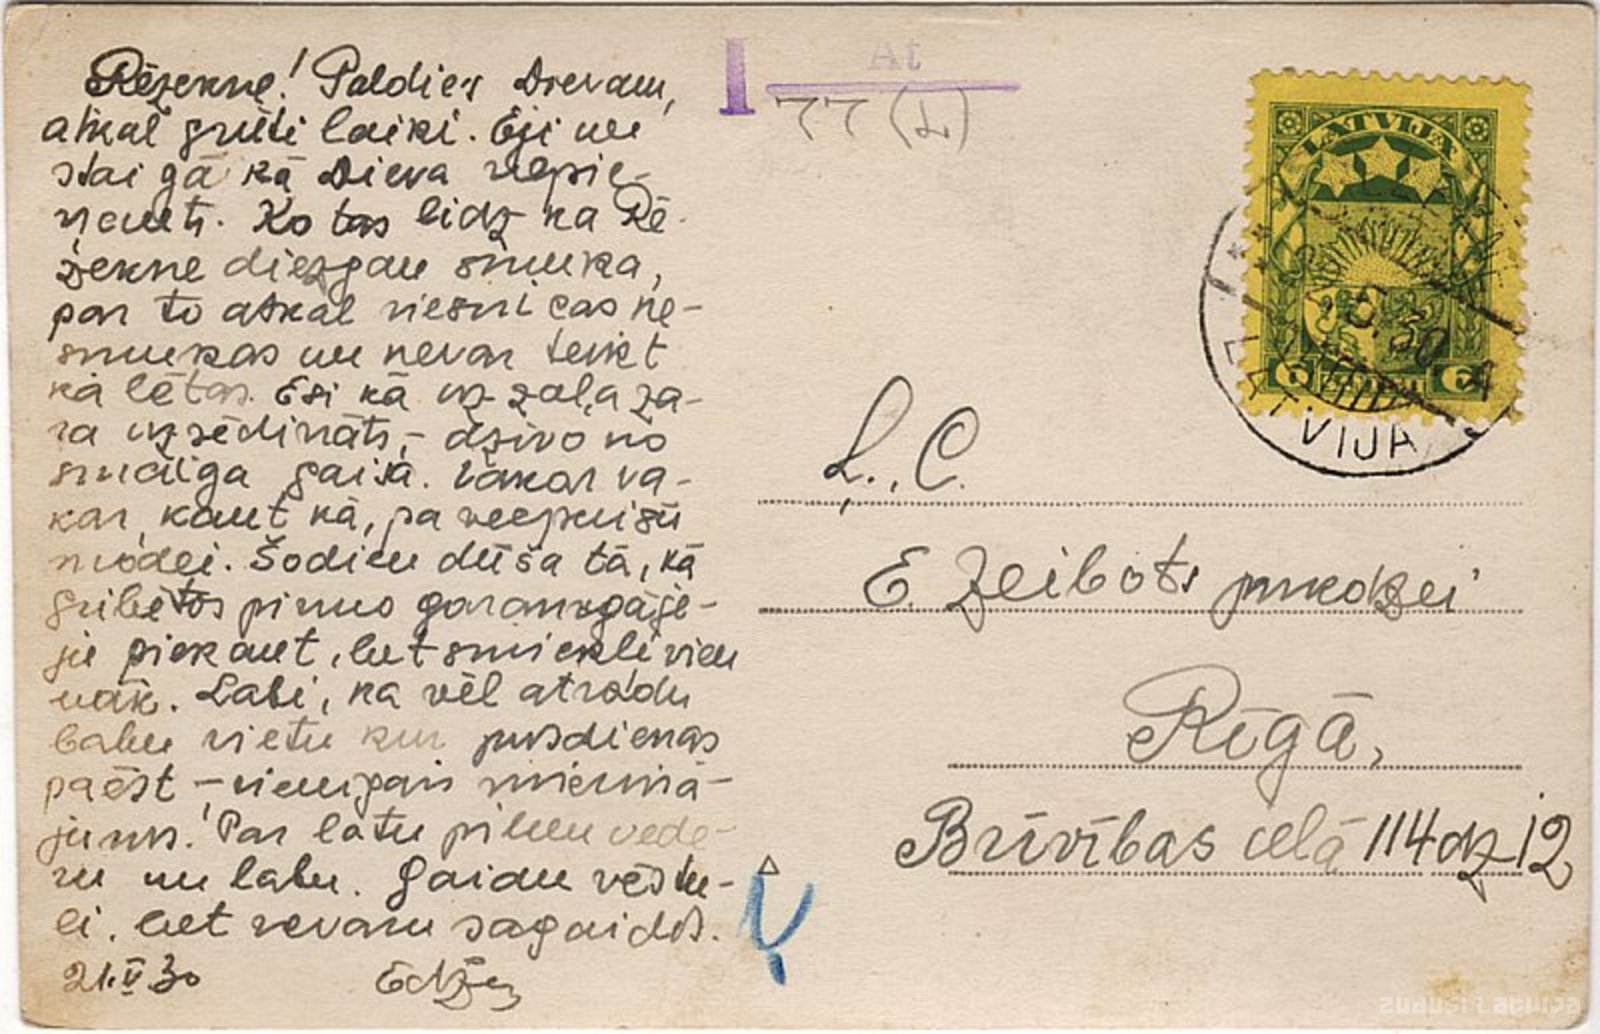 Rēzekne! Paldies Dievam,
atkal grūti laiki. Eji un
staigā kā Dieva nepie-
ņemts. Ko tas lidz ka Rē-
zekne diezgan smuka,
par to atkal viesnicas ne-
smukas un nevar teikt
ka lētas. Esi kā uz zaļa za-
ra uzsēdināts, – dzīvo no
smalīga gaisa. Vakar va-
kar, kaut kā, pa vecpuišu
modei. Šodien dūša tā, kā
gribētos pirmo garamgāje-
ju piekaut, bet smiekli vien
nāk. Labi, ka vēl atrodu
labu vietu kur pusdienas
paēst – vienīgais mierinā-
jums! Par latu pilnu vēde-
ru un labu. Gaidu vēstu-
li, bet nevaru sagaidīt.
21.V 30
At
77 (L)
LATVIJA
6
6
30
LATVIJA
Ļ. C.
E. Zeibots jınkdzei
Rīgā,
Brīvības ielā 114 dz 12
zudusi Latvija